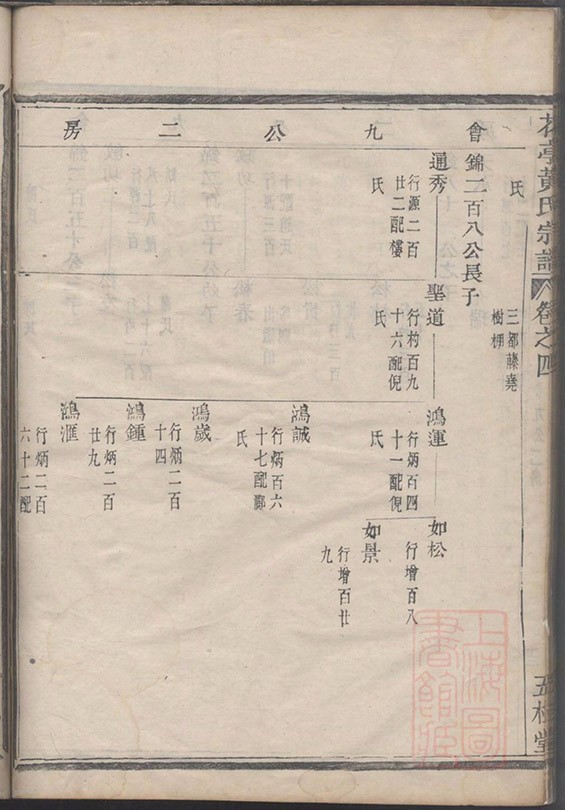 黃氏宗譜
卷之四
氏
三都藤堯
樹棚
會九公二房
錦二百八公長子
通秀
行源二百
廿二配樓
氏
聖道
行杓百九
十六配倪
氏
鴻運
行炳百四
十一配倪
氏
如松
行增百八
如景
行增百廿
九
鴻誠
行炳百六
十七配鄭
氏
鴻歲
行炳二百
十四
鴻鍾
行炳二百
廿九
鴻滙
行炳二百
六十二配
上海圖書館藏